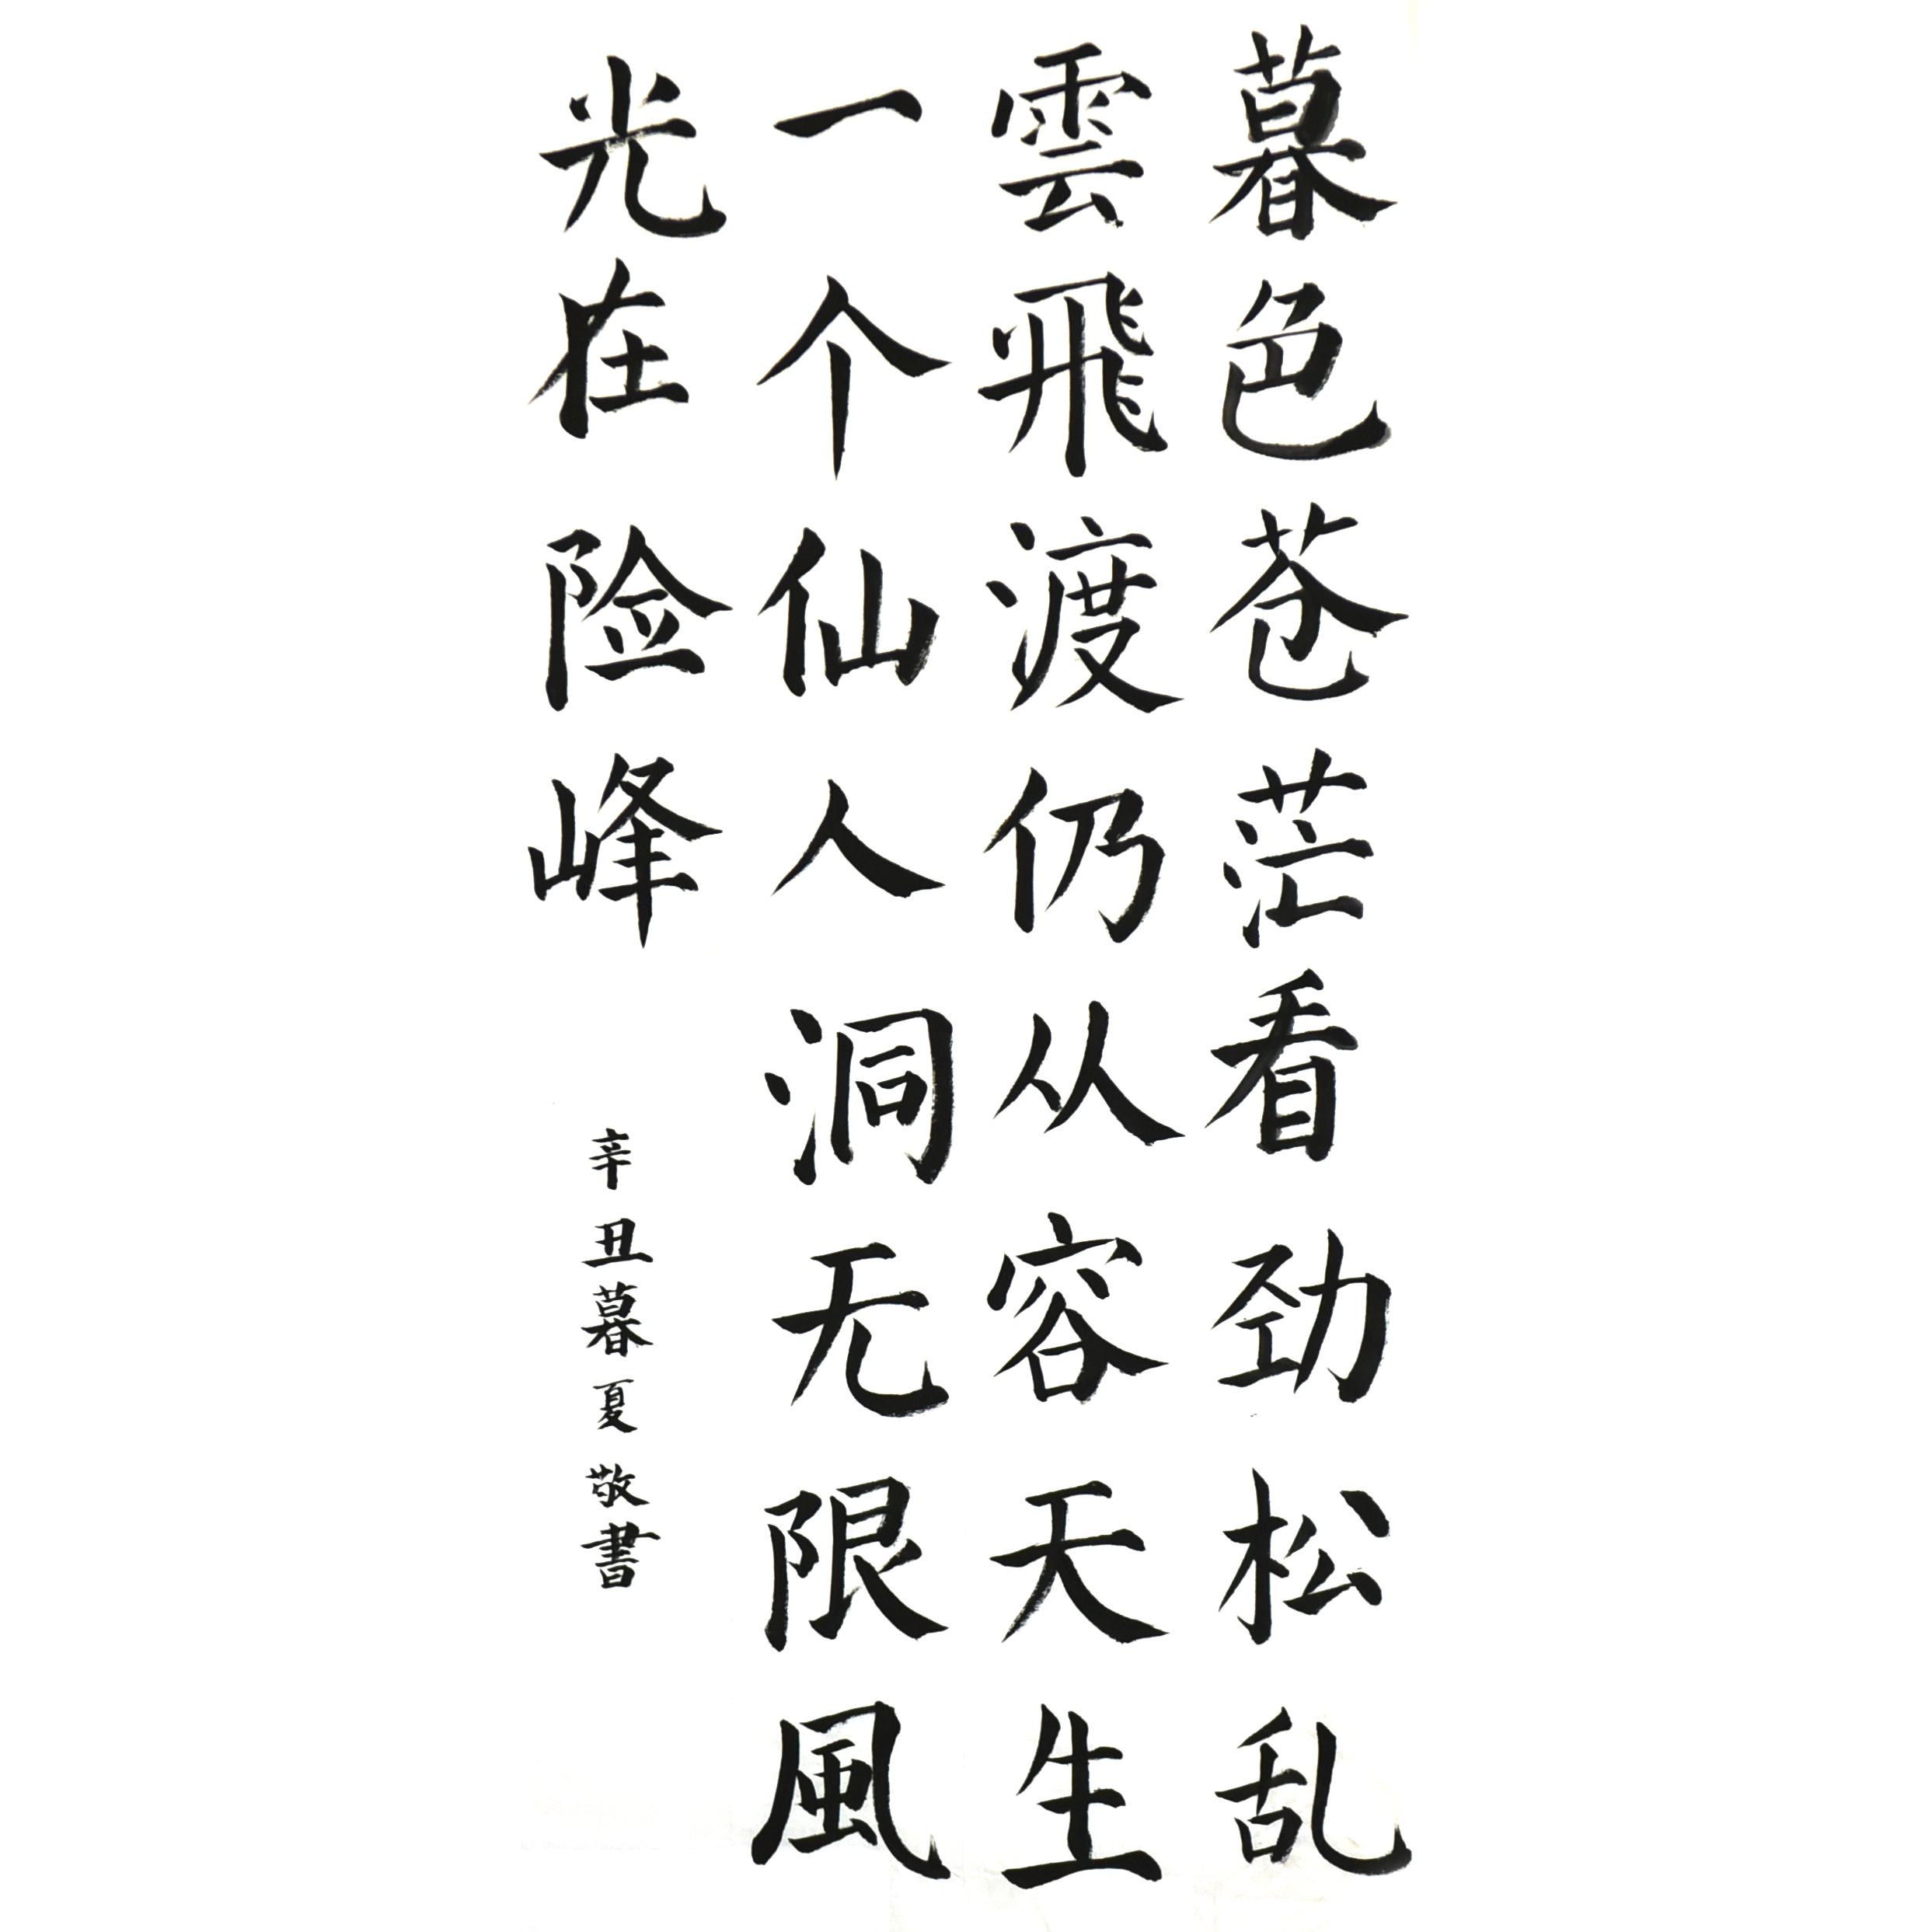 暮色苍茫看劲松乱
雲飛渡仍从容天生
一个仙人洞无限風
光在险峰
辛丑暮夏敬書